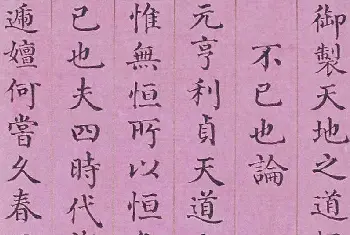 御製天地之道
不已也論
元亨利貞天道
惟無恒所以恒
已也夫四時代
遞嬗何嘗久春